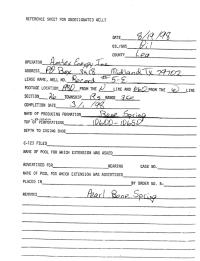 REFERENCE SHEET FOR UNDESIGNATED WELLS
DATE 8/19/98
OIL/GAS Oil
COUNTY Lea
OPERATOR Amtex Energy Inc
ADDRESS PO Box 3418 Midland Tx 79702
LEASE NAME, WELL NO. Record # 5-E
FOOTAGE LOCATION FROM THE N LINE AND FROM THE W LINE
SECTION TOWNSHIP 19s RANGE 35e
COMPLETION DATE 3/ /98
NAME OF PRODUCING FORMATION Bone Spring
TOP OF PERFORATIONS 10600 - 10650
DEPTH TO CASING SHOE
C-123 FILED
NAME OF POOL FOR WHICH EXTENSION WAS ASKED
ADVERTISED FOR HEARING CASE NO.
NAME OF POOL FOR WHICH EXTENSION WAS ADVERTISED
PLACED IN BY ORDER NO. R-
REMARKS Pearl Bone Spring